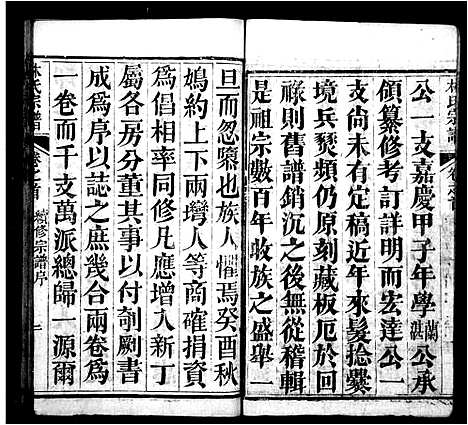 林氏宗譜
卷之首
公一支嘉慶甲子年學蘭湛公承
領纂修考訂詳明而宏達公一
支尚未有定稿近年來髮捻釁
境兵燹頻仍原刻藏板厄於回
祿則舊譜銷沉之後無從稽輯
是祖宗數百年收族之盛舉一
旦而忽隳也族人懼焉癸酉秋
鳩約上下兩灣人等商確捐資
爲倡相率同修凡應增入新丁
屬各房分董其事以付剞劂書
成爲序以誌之庶幾合兩卷爲
一卷而千支萬派總歸一源爾
林氏宗譜
卷之首
續修宗譜序
二